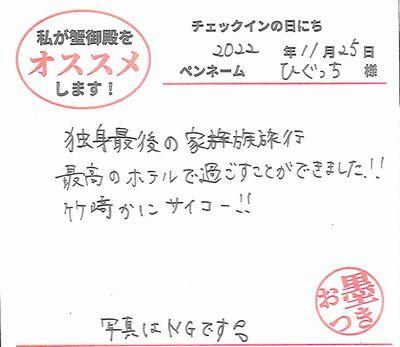 私が蟹御殿を
オススメ
します!
チェックインの日にち
2022年11月25日
ペンネーム ひぐっち 様
独身最後の家族旅行
最高のホテルで過ごすことができました!!
竹崎かにサイコー!!
写真はNGです
お墨つき